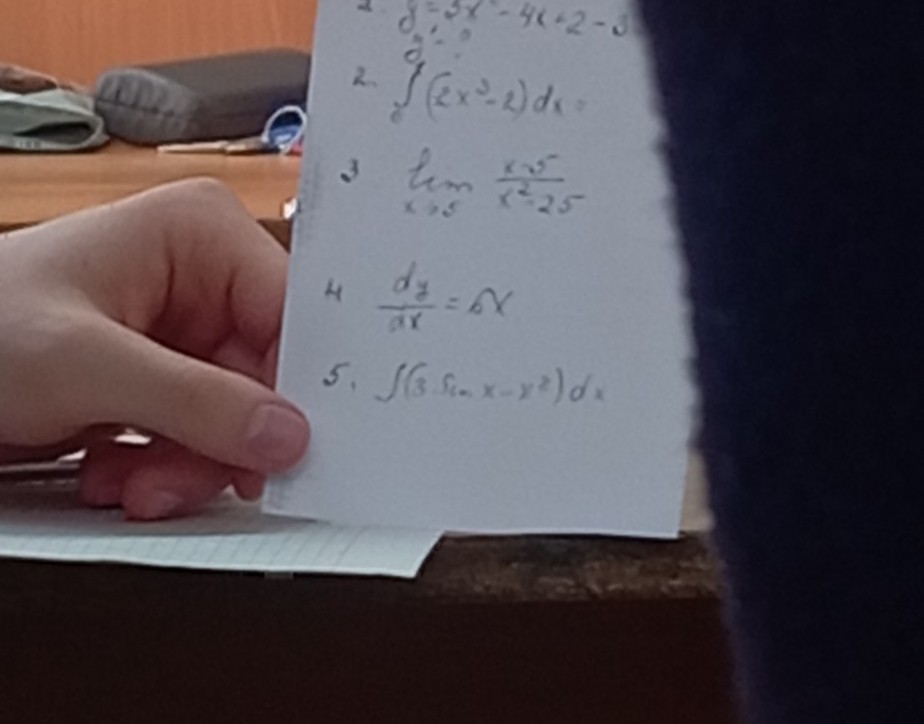 y = 5x - 4x + 2 - 3
y' - ?
2. ∫ (2x³ - 2) dx =
3 lim x→5 x-5 / x²-25
4 dy/dx = 6x
5. ∫(3 sin x - x²) dx